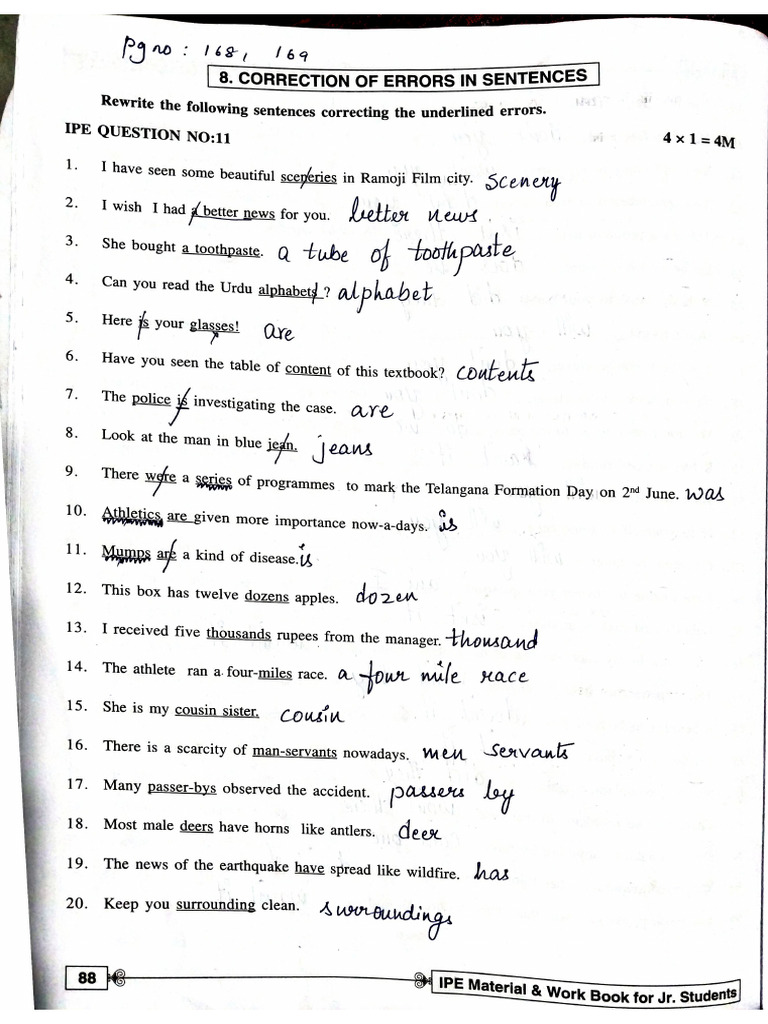 Pg no : 168, 169
8. CORRECTION OF ERRORS IN SENTENCES
Rewrite the following sentences correcting the underlined errors.
IPE QUESTION NO:11 4 × 1 = 4M
1. I have seen some beautiful sceneries in Ramoji Film city. scenery
2. I wish I had a better news for you. better news.
3. She bought a toothpaste. a tube of toothpaste
4. Can you read the Urdu alphabets? alphabet
5. Here is your glasses! are
6. Have you seen the table of content of this textbook? contents
7. The police is investigating the case. are
8. Look at the man in blue jean. jeans
9. There were a series of programmes to mark the Telangana Formation Day on 2nd June. was
10. Athletics are given more importance now-a-days. is
11. Mumps are a kind of disease. is
12. This box has twelve dozens apples. dozen
13. I received five thousands rupees from the manager. thousand
14. The athlete ran a four-miles race. a four mile race
15. She is my cousin sister. cousin
16. There is a scarcity of man-servants nowadays. men servants
17. Many passer-bys observed the accident. passers by
18. Most male deers have horns like antlers. deer
19. The news of the earthquake have spread like wildfire. has
20. Keep you surrounding clean. surroundings
88 IPE Material & Work Book for Jr. Students